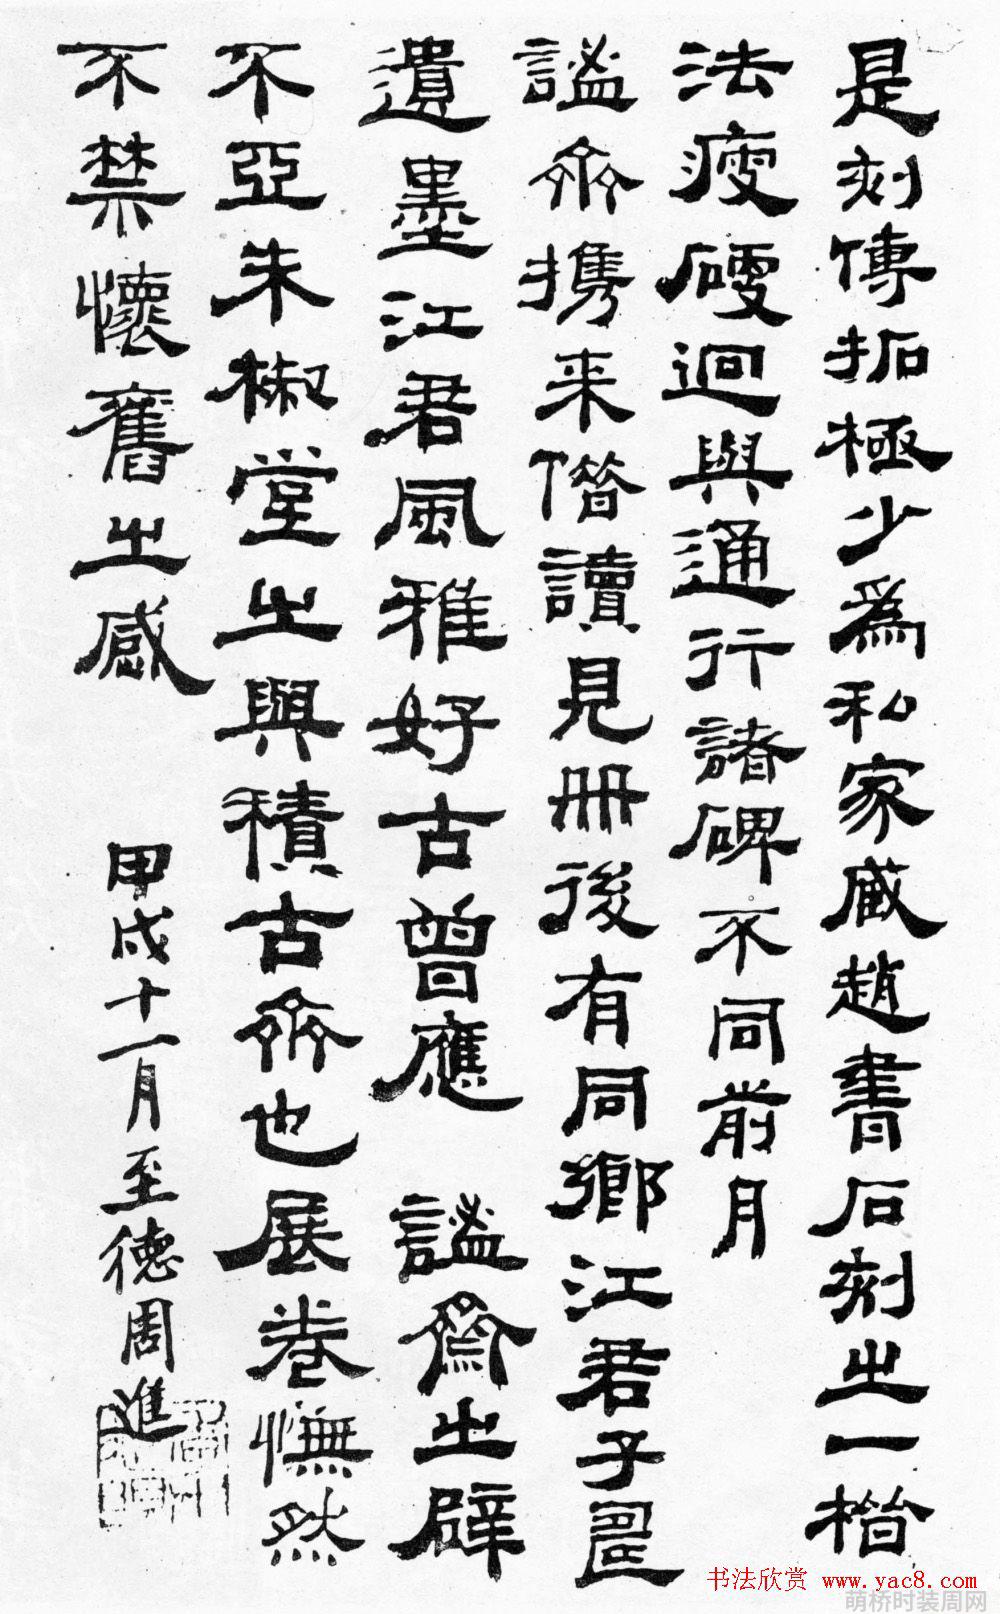 是刻傳拓極少爲私家藏趙書石刻之一楷
法瘦硬迥與通行諸碑不同前月
謐齊攜来借讀見冊後有同鄉江君子
遺墨江君風雅好古曾應 謐齋之辟
不亞朱椒堂之與積古齊也展卷憮然
不禁懷舊之感
甲戌十一月至德周進
书法欣赏 www.yac8.com
萌桥时装周网